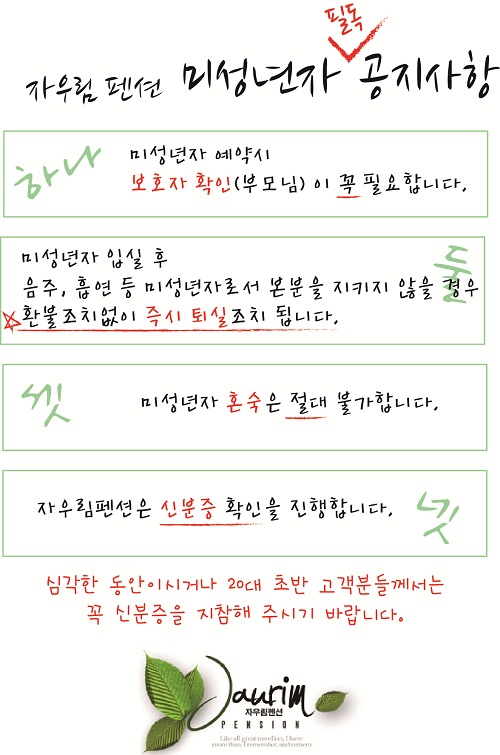 필독
자우림 펜션 미성년자 공지사항
하나
미성년자 예약시
보호자 확인(부모님) 이 꼭 필요합니다.
둘
미성년자 입실 후
음주, 흡연 등 미성년자로서 본분을 지키지 않을 경우
환불조치없이 즉시 퇴실조치 됩니다.
셋
미성년자 혼숙은 절대 불가합니다.
자우림펜션은 신분증 확인을 진행합니다.
넷
심각한 동안이시거나 20대 초반 고객분들께서는
꼭 신분증을 지참해 주시기 바랍니다.
Jaurim
자우림펜션
PENSION
Like all great travellers, I have
more than, I remember, and remem